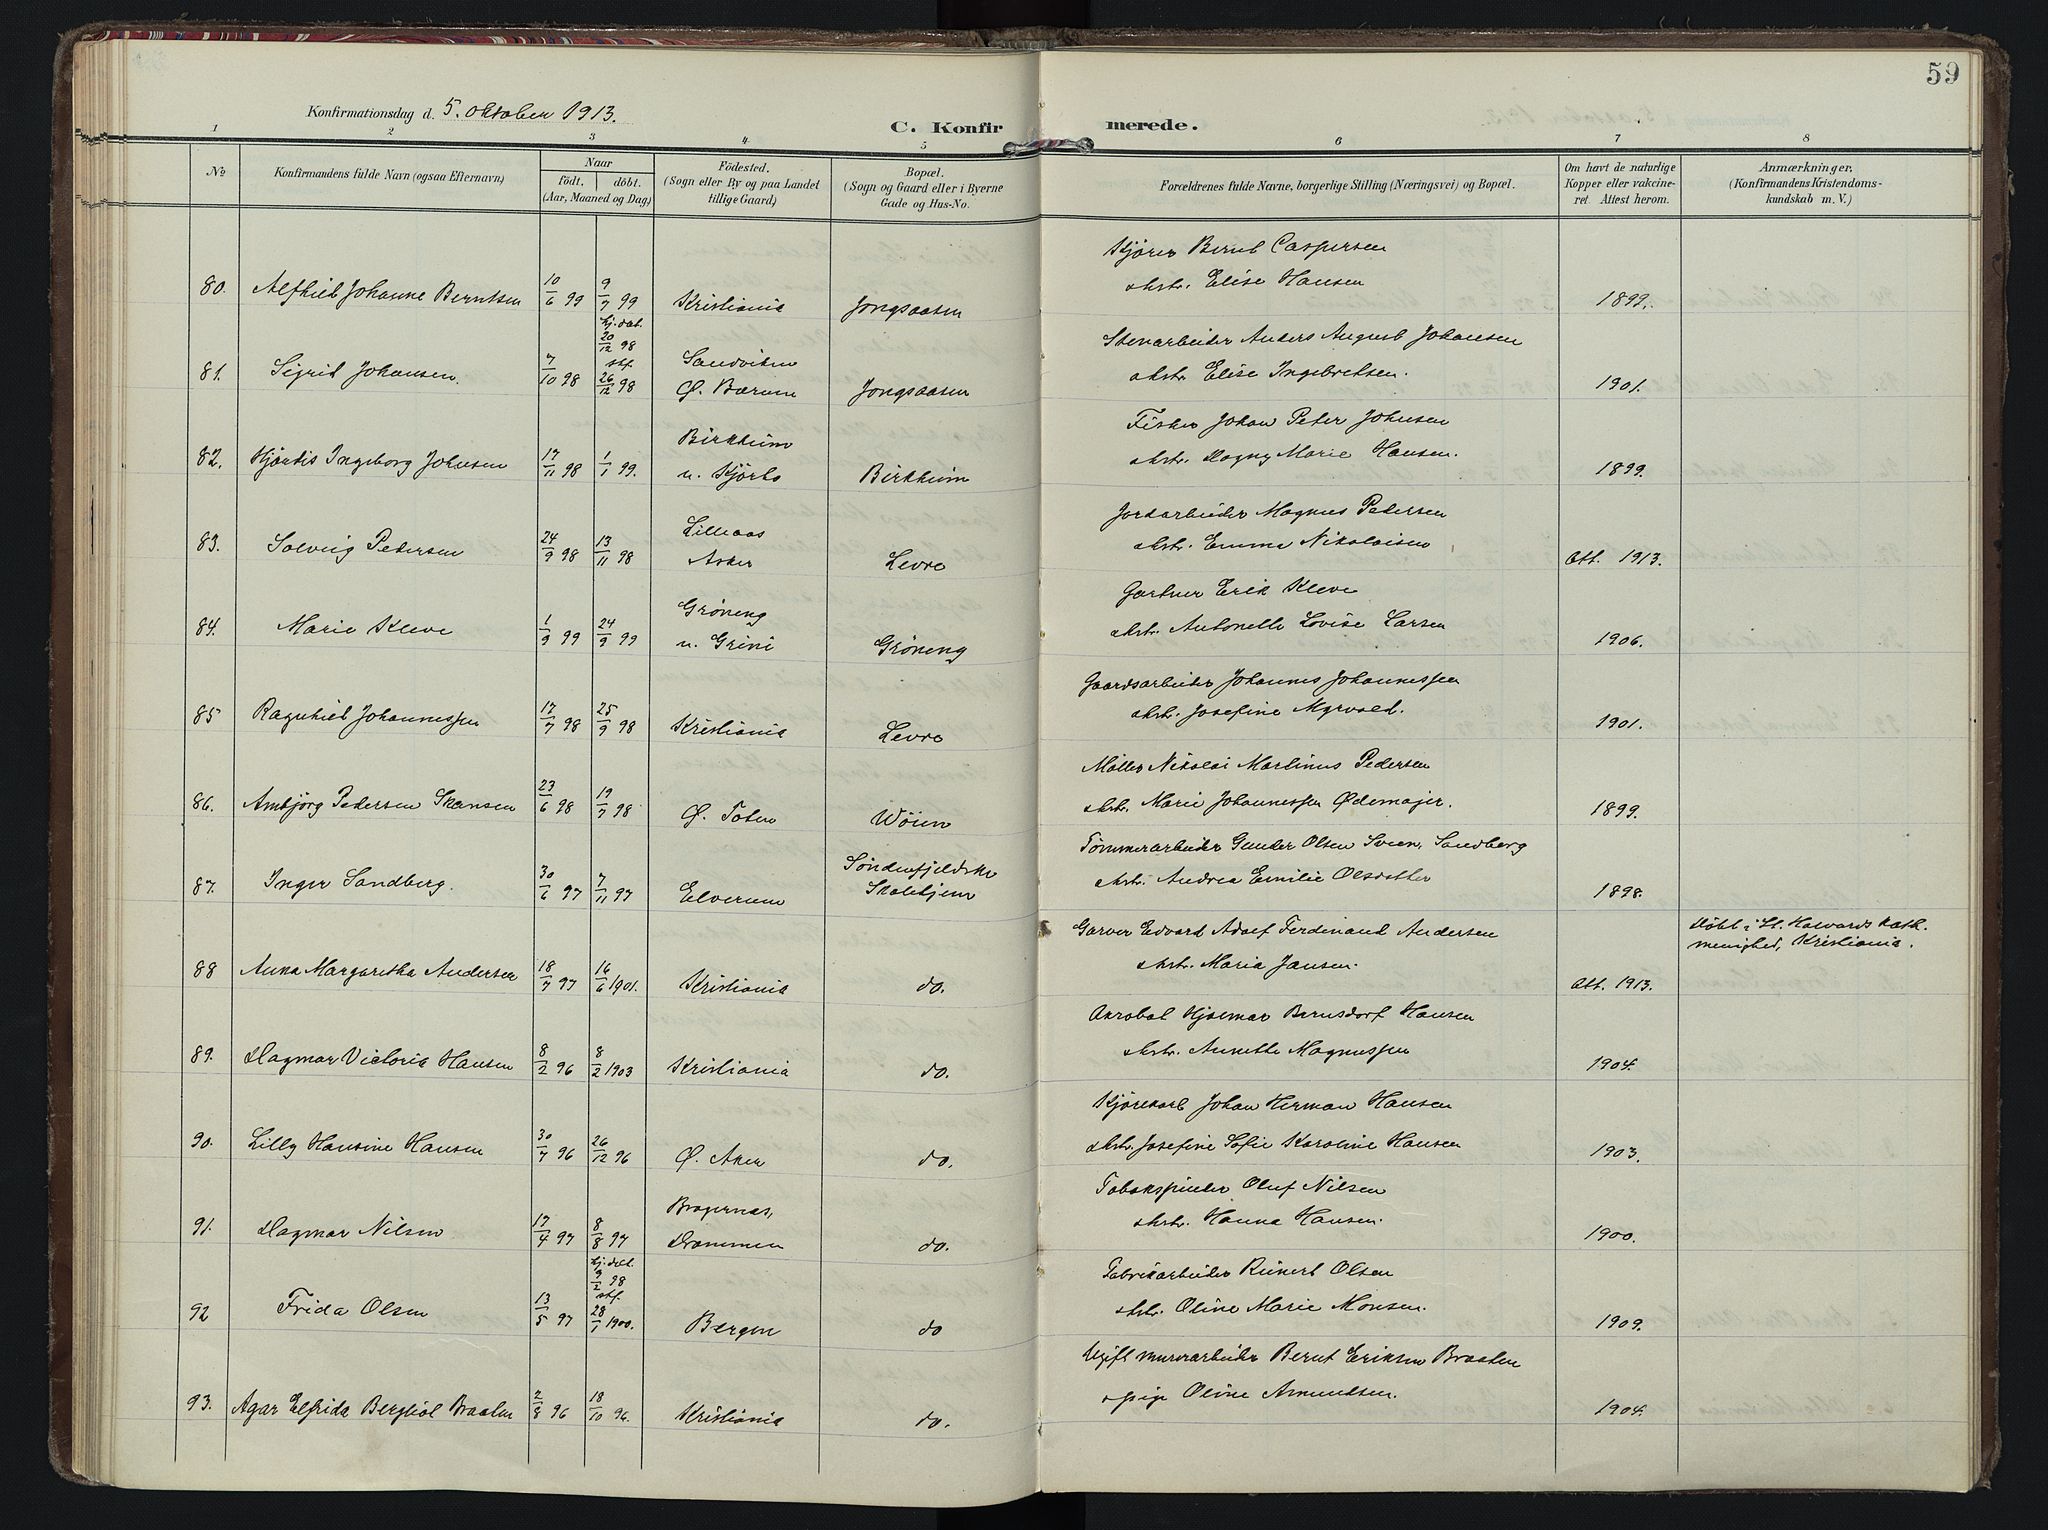 59
Konfirmationsdag d. 5. oktober 1913.
C. Konfirmerede.
1 2 3 4 5 6 7 8
No
Konfirmandens fulde Navn (ogsaa Efternavn)
Naar
födt. döbt.
(Aar, Maaned og Dag)
Födested.
(Sogn eller By og paa Landet
tillige Gaard)
Bopæl.
(Sogn og Gaard eller i Byerne
Gade og Hus-No.
Forældrenes fulde Navne, borgerlige Stilling (Næringsvei) og Bopæl.
Om havt de naturlige
Kopper eller vakcine-
ret. Attest herom.
Anmærkninger.
(Konfirmandens Kristendoms-
kundskab m. V.)
Kjører Bernt Caspersen
80. Alfhild Johanne Berntsen 10/6 99 9/7 99 Kristiania Jongsaasen
hstr. Elise Hansen 1899.
hj. døbt 20/12 98
Stenarbeider Anders August Johansen
81. Sigrid Johansen. 7/10 98 stf. 26/12 98 Sandviken
Ø. Bærum Jongsaasen
hstr. Elise Ingebretsen. 1901.
Fisker Johan Peter Johnsen
82. Hjørdis Ingeborg Johnsen 17/11 98 1/1 99. Birkheim
u. Kjørbo Birkheim
hstr. Dagny Marie Hansen. 1899.
Jordarbeider Magnus Pedersen
83. Solveig Pedersen 24/9 98 13/11 98 Lilleaas
Asker Levre
hstr. Emma Nikolaisen Att. 1913.
Gartner Erik Kleve
84. Marie Kleve 1/9 99 24/9 99 Grøneng
u. Grini Grøneng
hstr. Antonette Lovise Larsen 1906.
Gaardsarbeider Johannes Johannessen
85 Ragnhild Johannessen 17/7 98 25/9 98 Kristiania Levre
hstr. Josefine Myrvold. 1901.
Møller Nikolai Martinus Pedersen
86. Ambjørg Pedersen Skansen 23/6 98 19/7 98 Ø. Toten Wøien
hstr. Marie Johannessen Ødemajer. 1899.
Tømmerarbeider Gunder Olsen Sveen, Sandberg
87. Inger Sandberg. 30/6 97 7/11 97 Elverum Søndenfjeldske
Skolehjem
hstr. Andrea Emilie Olsdatter 1898.
Garver Edvard Adolf Ferdinand Andersen
Døbt i St. Halvards kath.
menighed, Kristiania.
88 Anna Margaretha Andersen 18/7 97 16/6 1901. Kristiania do.
hstr. Maria Jansen. Att. 1913.
Akrobat Hjalmar Bernsdorf Hansen
89. Dagmar Victoria Hansen 8/2 96 8/2 1903 Kristiania do.
hstr. Annette Magnussen 1904.
Kjørekarl Johan Herman Hansen
90. Lilly Hansine Hansen 30/7 96 26/12 96 Ø. Aker do.
hstr. Josefine Sofie Karoline Hansen 1903.
Tobakspinder Oluf Nilsen
91. Dagmar Nilsen 17/4 97 8/8 97 Bragernæs,
Drammen do.
hstr. Hanna Hansen. 1900.
hj. døbt 9/2 98
Fabrikarbeider Reinert Olsen
92 Frida Olsen 13/5 97 stf. 28/1 1900. Bergen do
hstr. Oline Marie Monsen. 1909.
Ugift murerarbeider Bernt Eriksen Braaten
93. Agar Elfrida Bergliot Braaten 2/8 96 18/10 96. Kristiania do.
pige Oline Amundsen. 1904.